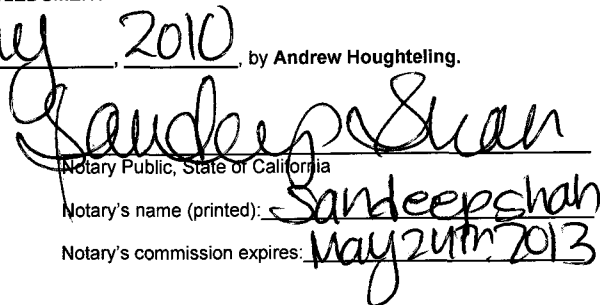 2010, by Andrew Houghteling.
Sandeep Shah
Notary Public, State of California
Notary's name (printed): Sandeep shah
Notary's commission expires: May 24th 2013